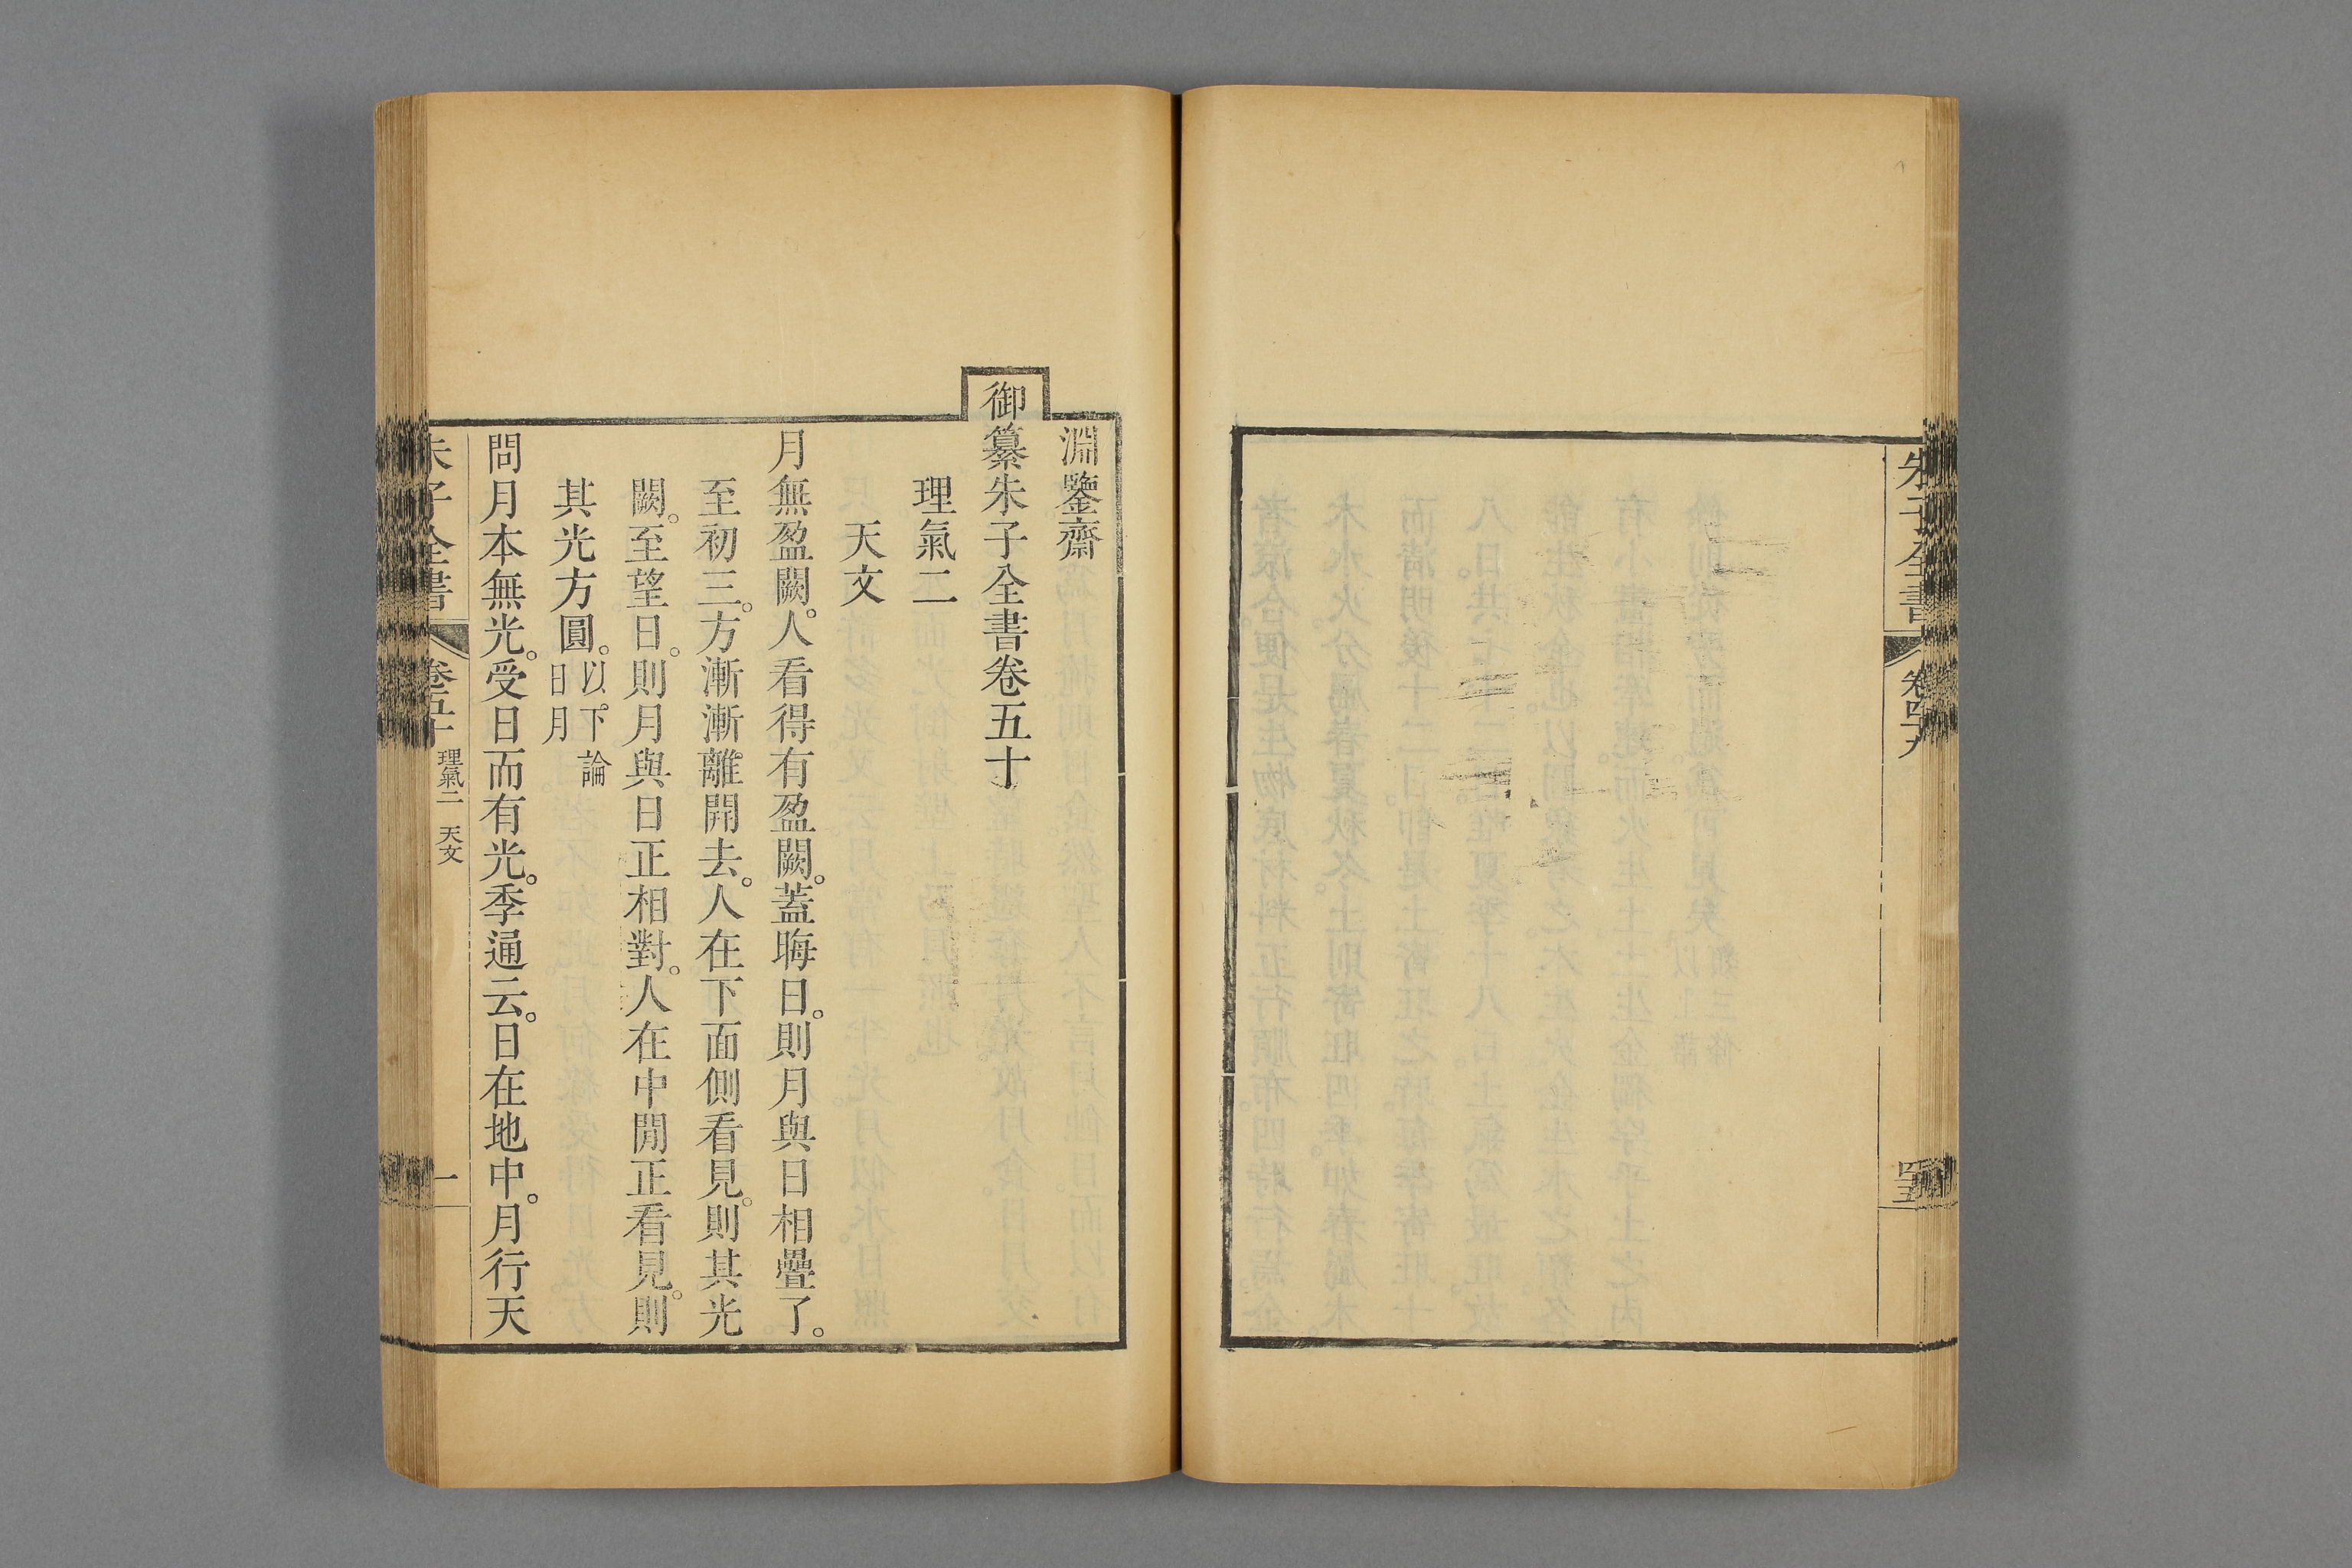 朱子全書 卷四十九
淵鑒齋
御纂朱子全書卷五十
理氣二
天文
月無盈闕。人看得有盈闕。蓋晦日。則月與日相疊了。
至初三。方漸漸離開去。人在下面側看見。則其光
闕。至望日。則月與日正相對。人在中閒正看見。則
其光方圓。以下論
日月
問月本無光。受日而有光。季通云。日在地中。月行天
朱子全書 卷五十 理氣二 天文 一